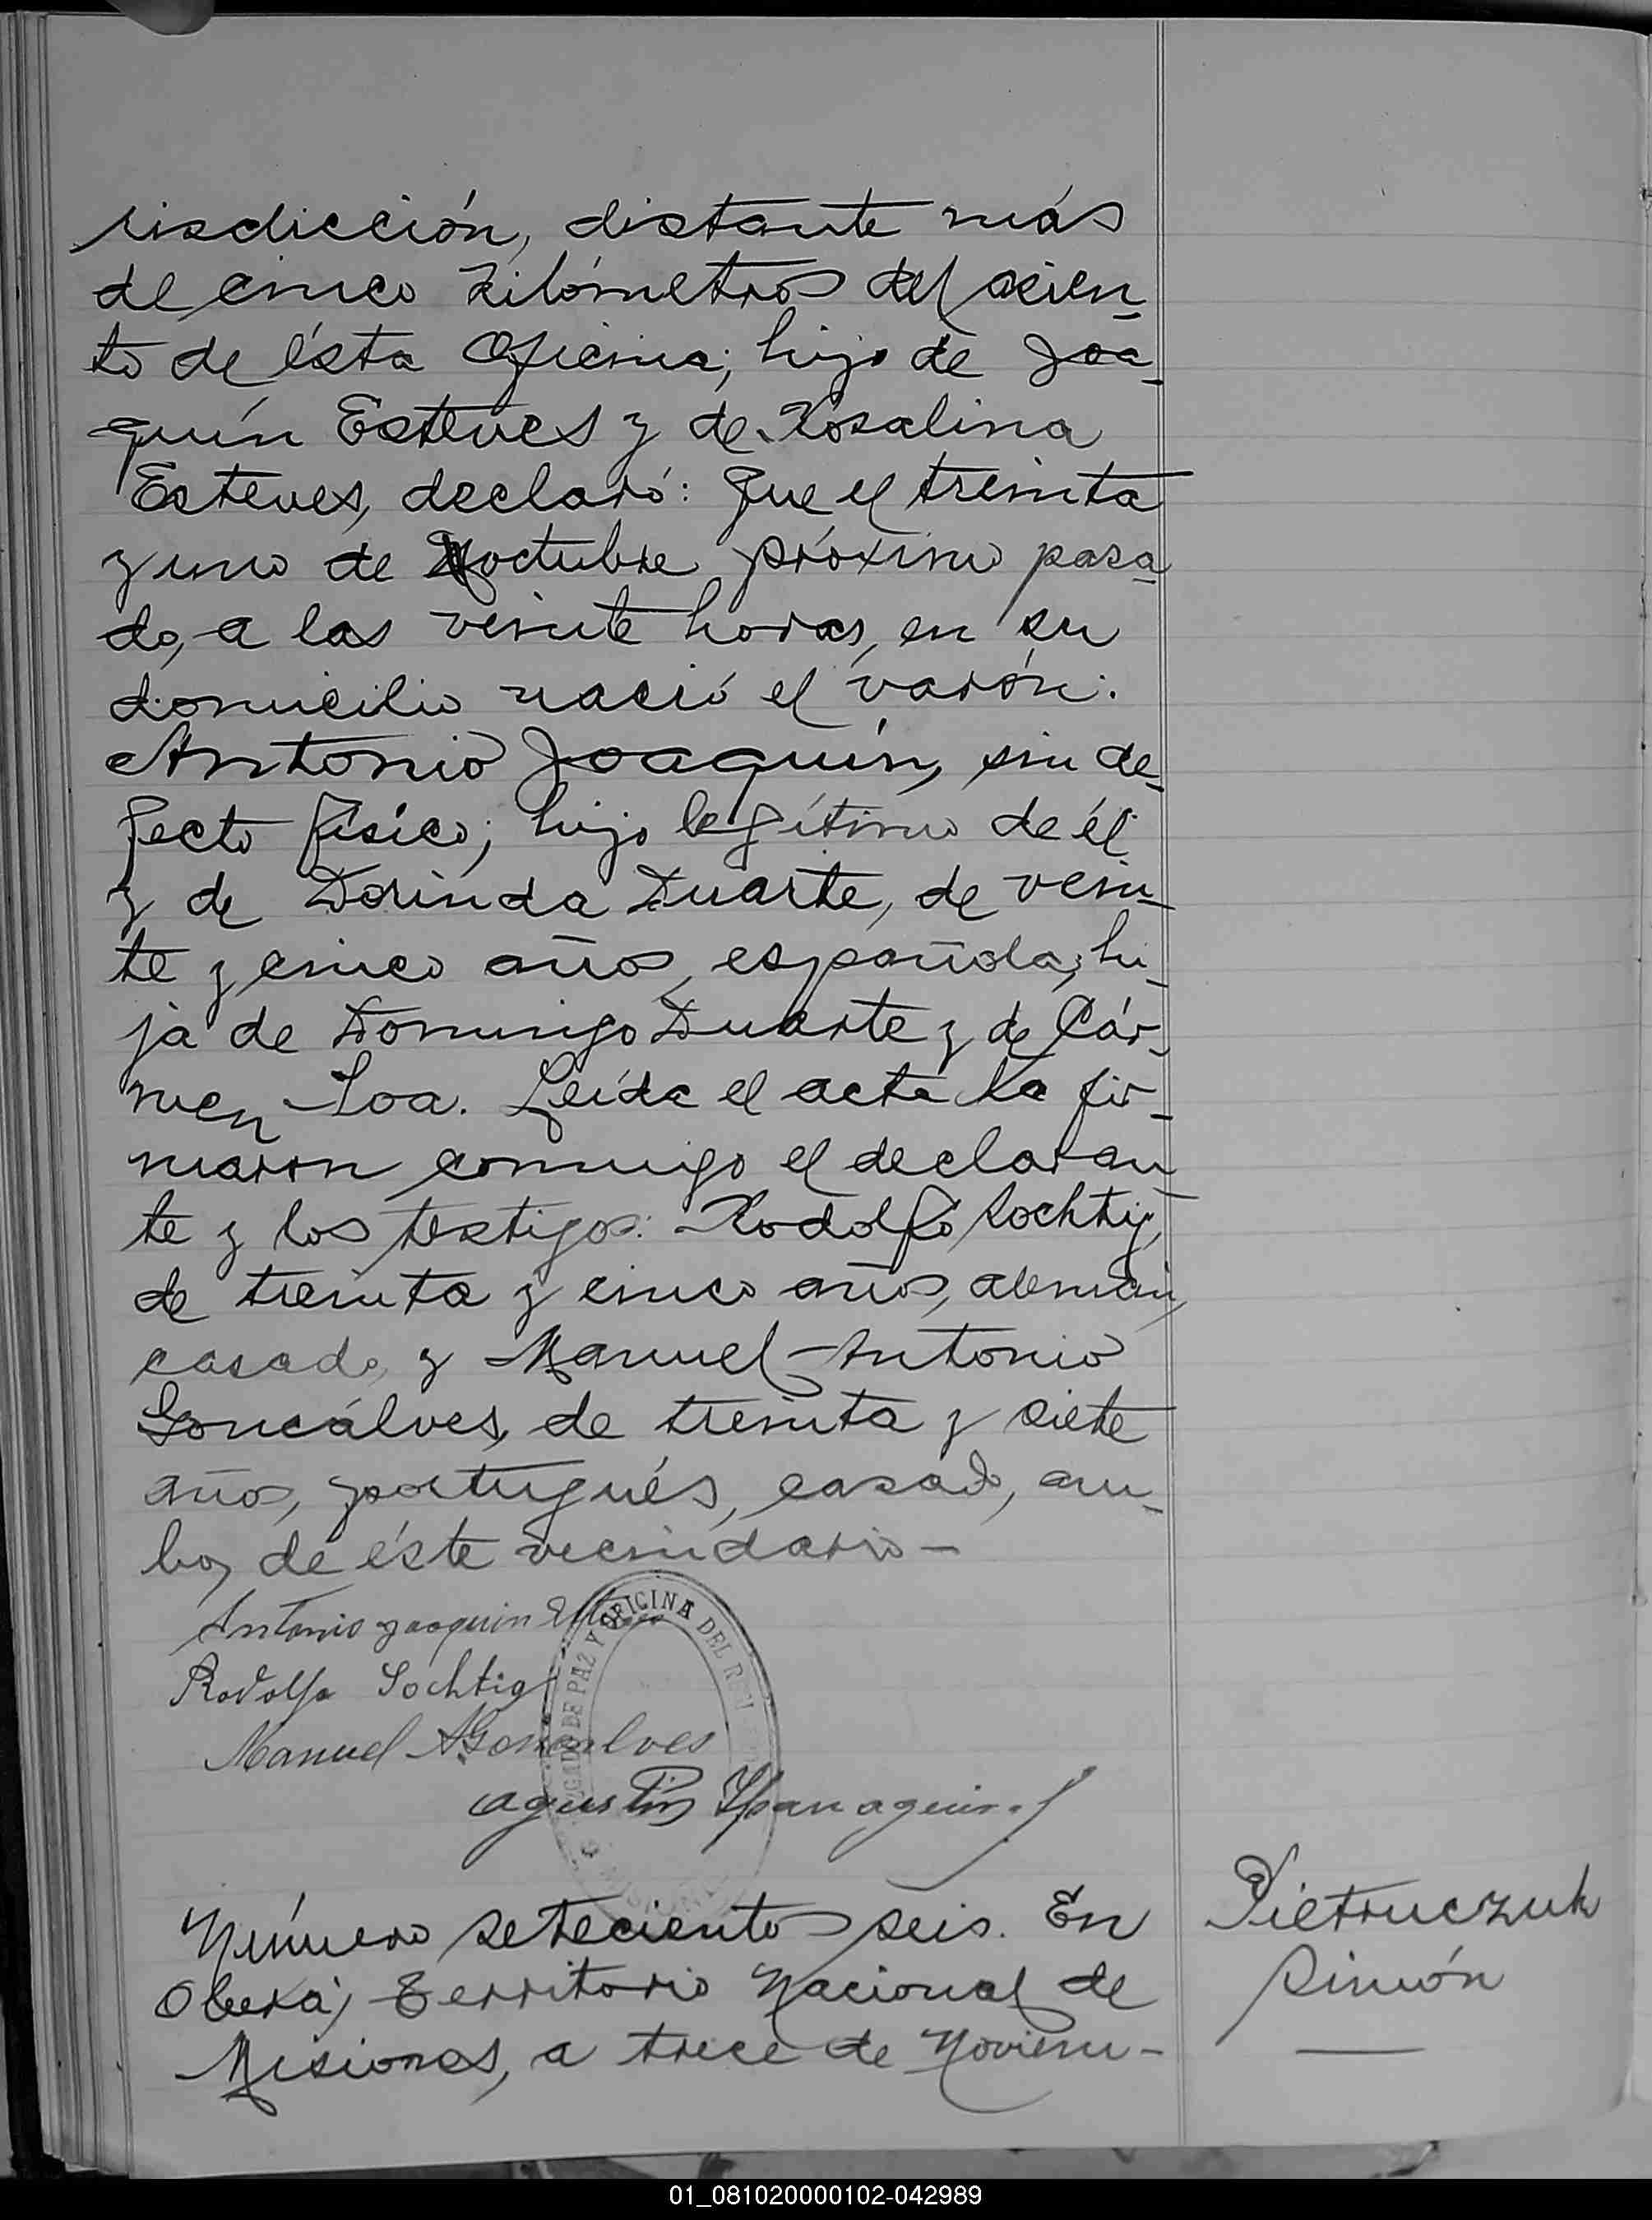 risdicción, distante más
de cinco kilómetros del asien-
to de ésta Oficina; hijo de Joa-
quín Esteves y de Rosalina
Esteves, declaró: Que el treinta
y uno de octubre próximo pasa-
do, a las veinte horas, en su
domicilio nació el varón:
Antonio Joaquín, sin de-
fecto físico; hijo legítimo de él
y de Dorinda Duarte, de vein-
te y cinco años, española; hi-
ja de Domingo Duarte y de Cár-
men Loa. Leída el acta la fir-
maron conmigo el declaran-
te y los testigos: Rodolfo Sochtig,
de treinta y cinco años, alemán,
casado, y Manuel Antonio
Goncálves, de treinta y siete
años, portugués, casado, am-
bos de éste vecindario—
Antonio Joaquin Esteves
OFICINA DEL
DE PAZ Y
Rodolfo Sochtig
Manuel A Goncalves
Agustin
Número setecientos seis. En
Oberá, Territorio Nacional de
Misiones, a trece de Noviem-
Pietruczuk
Simón
01_081020000102-042989